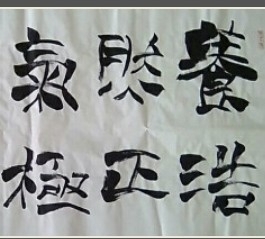 養浩
然正
氣極